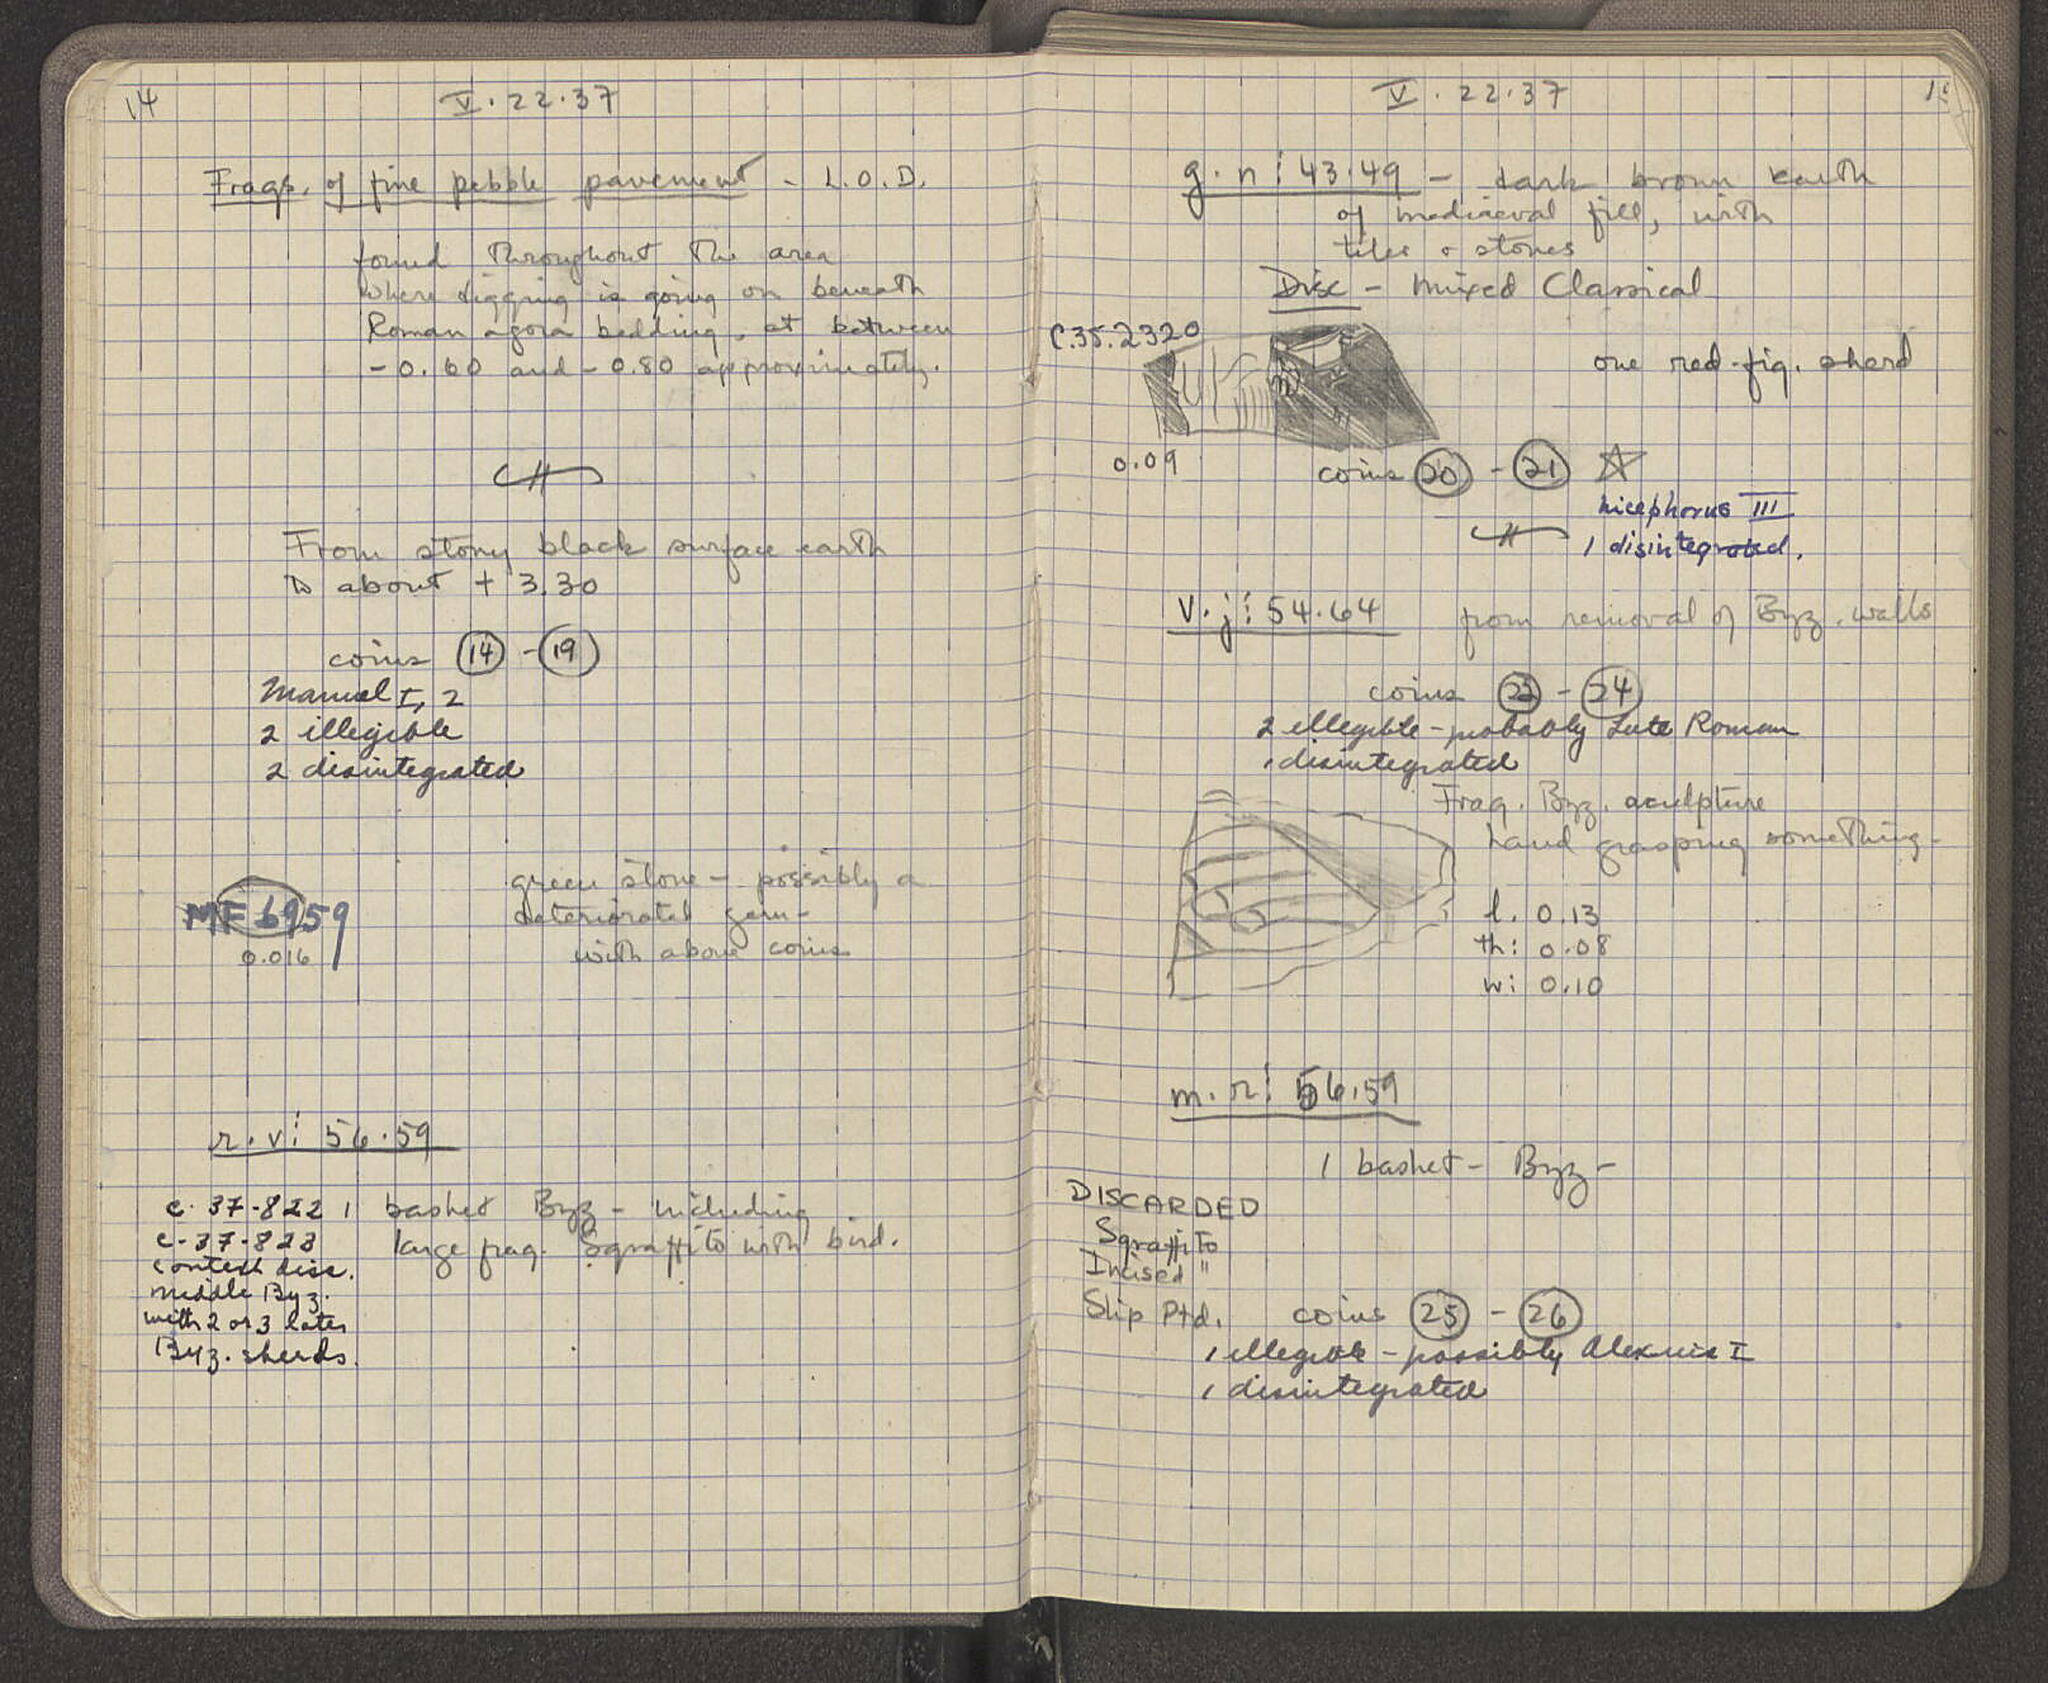 14
V.22.37
Frags. of fine pebble pavement - L.O.D.
found throughout the area
where digging is going on beneath
Roman agora bedding, at between
-0.60 and -0.80 approximately.
From stony black surface earth
to about + 3.30
coins 14 - 19
Manuel I, 2
2 illegible
2 disintegrated
green stone - possibly a
deteriorated gem -
with above coins
MF 6959
0.016
r.v: 56.59
C-37-822 1 basket Byz - including
C-37-823 large frag. Sgraffito with bird.
context disc.
middle Byz.
with 2 or 3 later
Byz. sherds.
V.22.37
g.n: 43.49 - dark brown earth
of mediaeval fill, with
tiles & stones
Disc - mixed Classical
C.35.2320
one red-fig. sherd
0.09
coins 20 - 21
Nicephorus III
1 disintegrated.
v.j: 54.64 from removal of Byz. walls
coins 22 - 24
2 illegible - probably Late Roman
1 disintegrated
Frag. Byz. sculpture
hand grasping something -
l. 0.13
th: 0.08
w: 0.10
m.r: 56.59
1 basket - Byz -
DISCARDED
Sgraffito
Incised "
Slip Ptd.
coins 25 - 26
1 illegible - possibly Alexius I
1 disintegrated